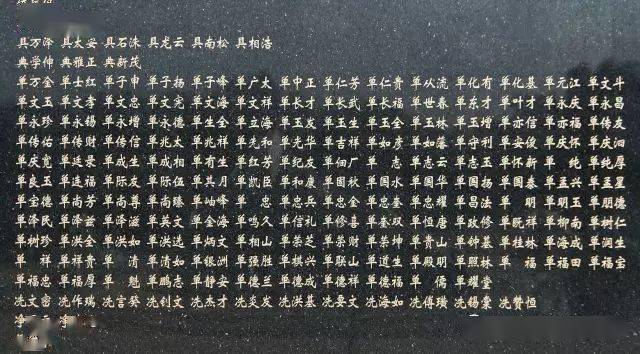 具万泽 具太安 具石洙 具龙云 具南松 具相浩
典学仲 典雅正 典新茂
单万金 单士红 单子申 单子扬 单子峰 单广太 单中正 单仁芳 单仁贵 单从流 单化有 单化基 单元江 单文斗
单文玉 单文孝 单文忠 单文宪 单文海 单文祥 单长才 单长武 单长福 单世春 单东才 单叶才 单永庆 单永盛
单永珍 单永锡 单永增 单永德 单生全 单立海 单玉发 单玉生 单玉全 单玉林 单玉增 单亦信 单亦福 单传友
单传佑 单传财 单传信 单兆太 单兆祥 单先和 单光华 单吉祥 单如彦 单如藻 单守利 单安俊 单庆新 单庆洄
单庆宽 单廷录 单成生 单成相 单有生 单红芳 单纪友 单吉佃 单志 单志云 单志玉 单怀新 单纯 单纯厚
单良玉 单连福 单际友 单际伍 单其月 单凯臣 单和康 单国秋 单国水 单国华 单国扬 单国泰 单孟兴 单孟星
单宝德 单尚芳 单尚尊 单尚臻 单屿峰 单忠 单忠兵 单忠祥 单忠奎 单忠耀 单昌法 单明 单明玉 单朋德
单泽民 单泽兹 单泽滋 单英文 单金海 单鸣久 单信礼 单修喜 单奎双 单恒唐 单政修 单明祥 单柳南 单树仁
单树珍 单洪全 单洪如 单洪选 单炳文 单相山 单荣芝 单荣财 单荣坤 单贵山 单钟基 单阮桂 单海成 单润生
单祥 单祥贵 单清 单清如 单银洲 单强胜 单棋兴 单联山 单道生 单殿明 单照林 单福林 单福田 单福宝
单福忠 单福厚 单魁 单鹏志 单静安 单德兰 单德成 单德祥 单德福 单儒 单耀堂
冼文密 冼作瑞 冼言癸 冼钊文 冼杰才 冼炎发 冼洪基 冼晏文 冼海如 冼傅璜 冼锡棠 冼赞恒